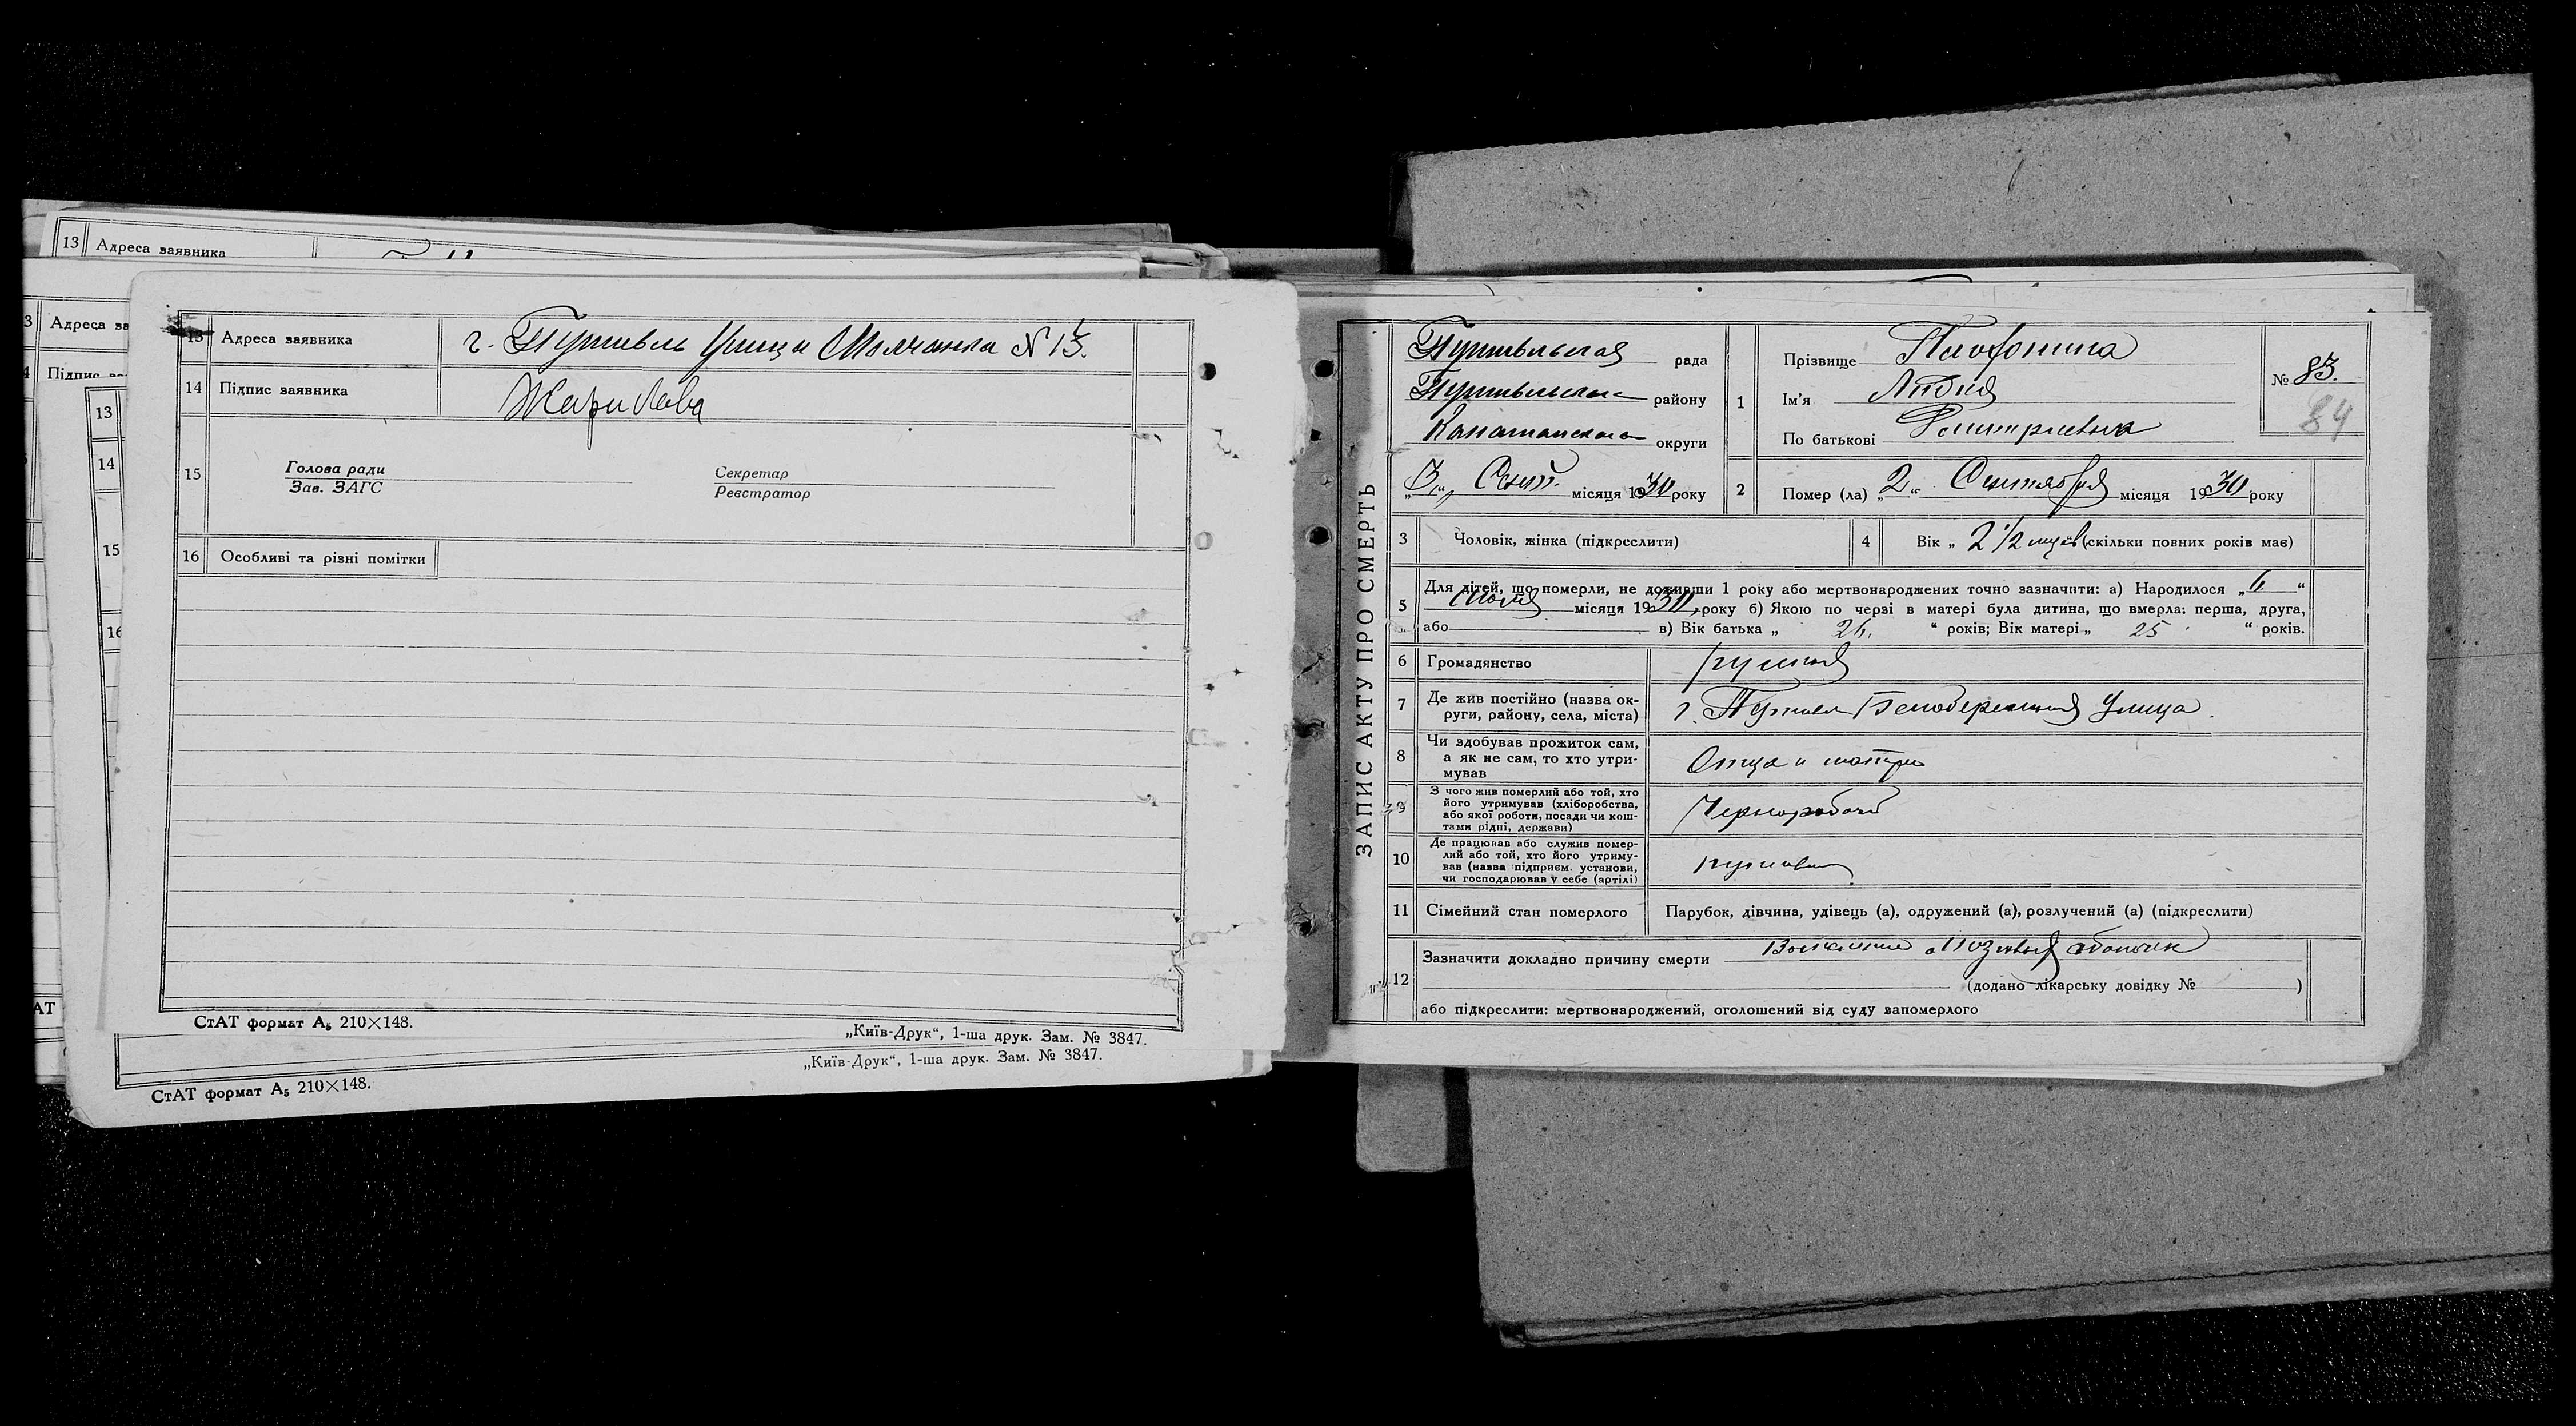 13 Адреса заявника
3 Адреса за
4 Підпис за
13
14
15
16
13 Адреса заявника г. Путивль Улица Молчанка N 13.
14 Підпис заявника
15 Голова ради
Зав. ЗАГС
Секретар
Реєстратор
16 Особливі та різні помітки
СтАТ формат А₅ 210×148.
„Київ-Друк“, 1-ша друк. Зам. № 3847.
„Київ-Друк“, 1-ша друк. Зам. № 3847.
СтАТ формат А₅ 210×148.
АТ
ЗАПИС АКТУ ПРО СМЕРТЬ
Путивльская рада
Путивльского району
Конотопского округи
„3“ Сент. місяця 1930 року
1 Прізвище
Ім'я Лидия
По батькові Дмитриевна
№ 83.
84
2 Помер (ла) „2“ Сентября місяця 1930 року
3 Чоловік, жінка (підкреслити)
4 Вік „2 1/2 месяц (скільки повних років має)
5 Для дітей, що померли, не доживши 1 року або мертвонароджених точно зазначити: а) Народилося
місяця 1930 року б) Якою по черзі в матері була дитина, що вмерла: перша, друга,
або в) Вік батька „ 26. “ років; Вік матері „ 25 “ років.
6 Громадянство русская
7 Де жив постійно (назва ок-
руги, району, села, міста) г. Путивль Улица
8 Чи здобував прожиток сам,
а як не сам, то хто утри-
мував Отца и матери
9 З чого жив померлий або той, хто
його утримував (хліборобства,
або якої роботи, посади чи кош-
тами рідні, держави) Чернорабочий
10 Де працював або служив помер-
лий або той, хто його утриму-
вав (назва підприєм. установи,
чи господарював у себе (артілі)
11 Сімейний стан померлого Парубок, дівчина, удівець (а), одружений (а), розлучений (а) (підкреслити)
12 Зазначити докладно причину смерти Воспаление мозговых оболочек
(додано лікарську довідку № )
або підкреслити: мертвонароджений, оголошений від суду запомерлого